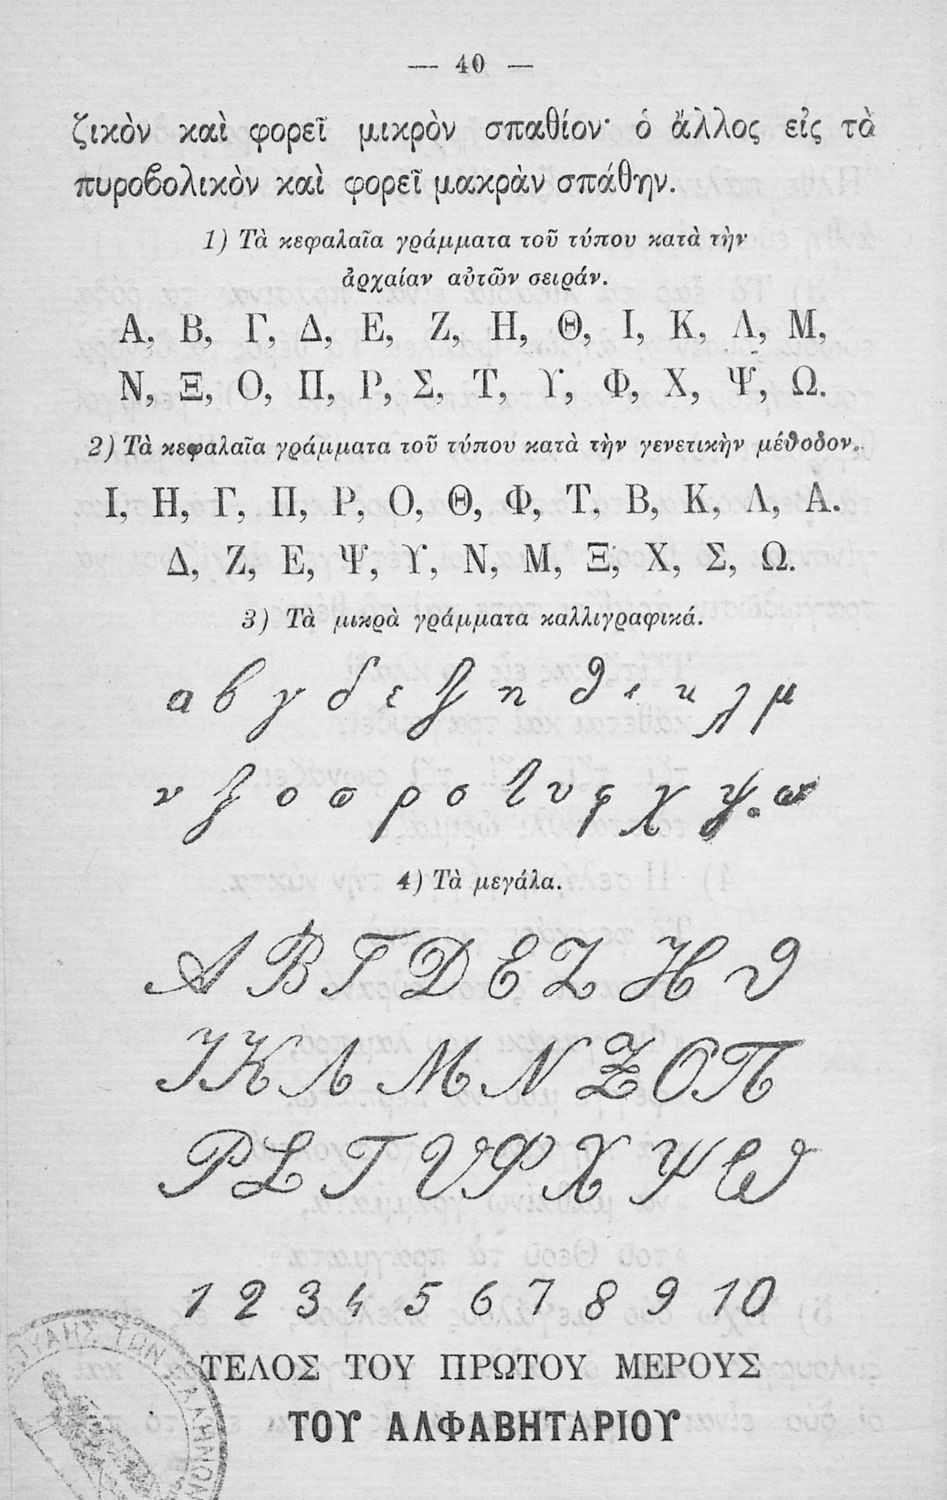 — 40 —
ζικὸν καὶ φορεῖ μικρὸν σπαθίον· ὁ ἄλλος εἰς τὸ
πυροϐολικὸν καὶ φορεῖ μακρὰν σπάθην.
1) Τὰ κεφαλαῖα γράμματα τοῦ τύπου κατὰ τὴν
ἀρχαίαν αὐτῶν σειράν.
Α, Β, Γ, Δ, Ε, Ζ, Η, Θ, Ι, Κ, Λ, Μ,
Ν, Ξ, Ο, Π, Ρ, Σ, Τ, Υ, Φ, Χ, Ψ, Ω.
2) Τὰ κεφαλαῖα γράμματα τοῦ τύπου κατὰ τὴν γενετικὴν μέθοδον.
Ι, Η, Γ, Π, Ρ, Ο, Θ, Φ, Τ, Β, Κ, Λ, Α.
Δ, Ζ, Ε, Ψ, Υ, Ν, Μ, Ξ, Χ, Σ, Ω.
3) Τὰ μικρὰ γράμματα καλλιγραφικά.
α β γ δ ε ζ η θ ι κ λ μ
ν ξ ο π ρ σ τ υ φ χ ψ. ω
4) Τὰ μεγάλα.
Α Β Γ Δ Ε Ζ Η Θ
Ι Κ Λ Μ Ν Ξ Ο Π
Ρ Σ Τ Υ Φ Χ Ψ Ω
1 2 3 4 5 6 7 8 9 10
ΤΕΛΟΣ ΤΟΥ ΠΡΩΤΟΥ ΜΕΡΟΥΣ
ΤΟΥ ΑΛΦΑΒΗΤΑΡΙΟΥ
ΤΩΝ ΕΛΛΗΝΩΝ